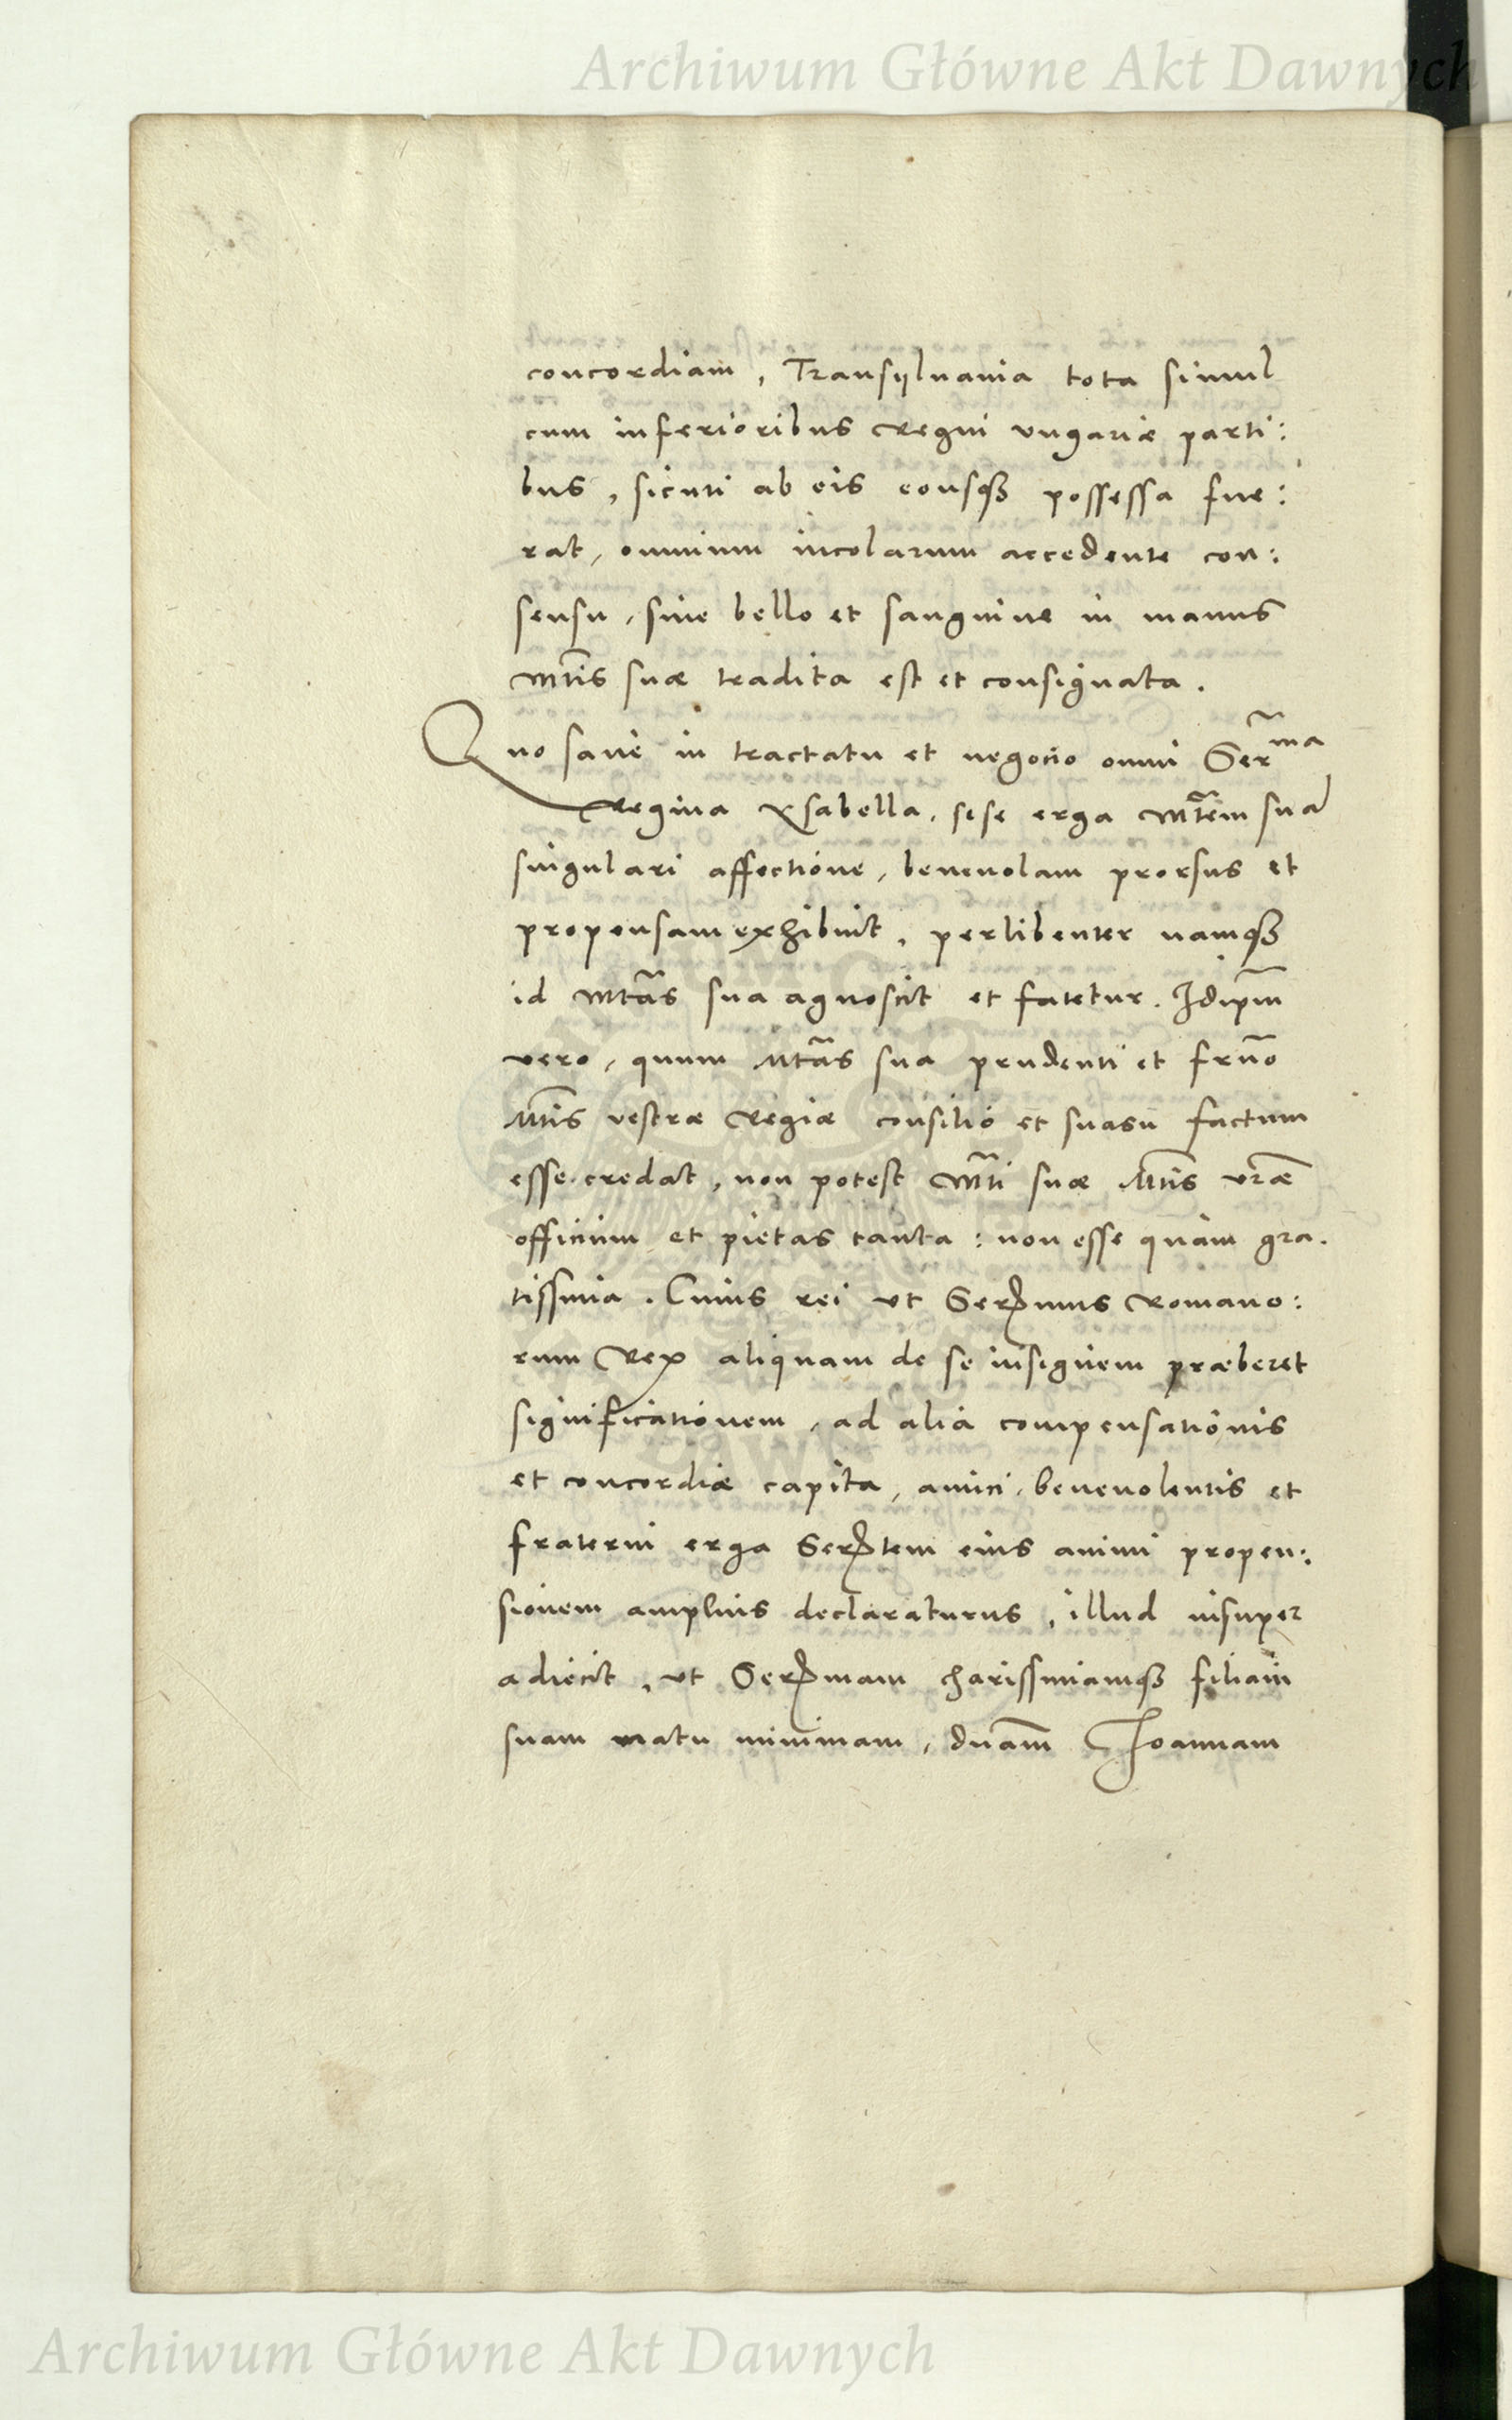 Archiwum Główne Akt Dawnych
concordiam, Transÿluania tota simul
cum inferioribus Regni vngariæ parti:
bus, sicuti ab eis eousqȝ possessa fue:
rat, omnium incolarum accedente con:
sensu, sine bello et sanguine in manus
Mt̃is suæ tradita est et consignata.
Quo sane in tractatu et negocio omni Ser̃ma
Regina Ysabella, sese erga Mt̃em suã
singulari affectione, beneuolam prorsus et
propensam exhibuit, perlibenter namqȝ
id Mt̃as sua agnoscit et fatetur. Idip̃m
vero, quum Mt̃as sua prudenti et fr̃no
Mt̃is vestræ Regiæ consilio et suasu factum
esse credat, non potest Mt̃i suæ Mt̃is vr̃æ
officium et pietas tanta: non esse quàm gra.
tissima. Cuius rei vt Serꝰmus Romano:
rum Rex aliquam de se insignem præberet
significationem, ad alia compensationis
et concordiæ capita, amici, beneuolentis et
fraterni erga Serꝰtem eius animi propen:
sionem amplius declaraturus, illud insuper
adiecit, vt Serꝰmam charissimamqȝ filiam
suam natu minimam, dn̄am Joannam
Archiwum Główne Akt Dawnych